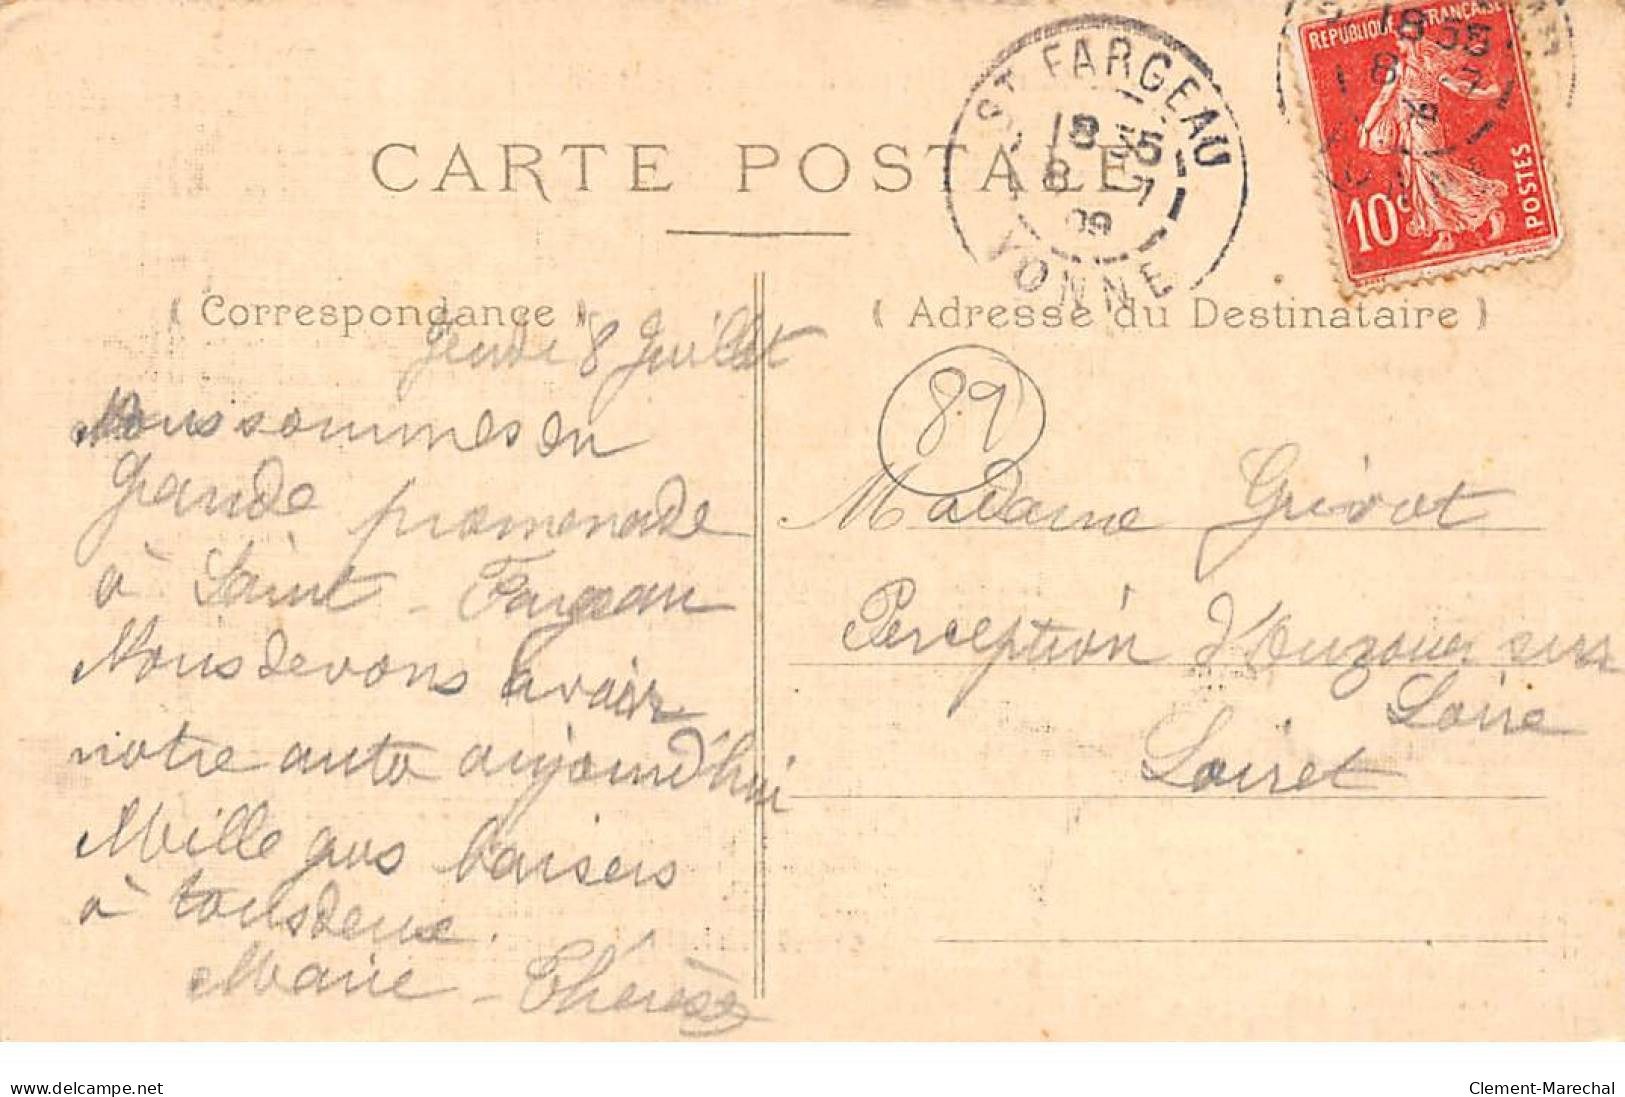 CARTE POSTALE
ST FARGEAU
18 55
8 - 7
09
YONNE
REPUBLIQUE FRANÇAISE
10c
POSTES
( Correspondance )
( Adresse du Destinataire )
Jeudi 8 Juillet
Nous sommes en
grande promenade
à Saint-Fargeau
Nous devons avoir
notre auto aujourd'hui
Mille gros baisers
à tous deux.
Marie-Thérèse
89
Madame Grivot
Perception d'Ouzouer sur
Loire
Loiret
www.delcampe.net
Clement-Marechal